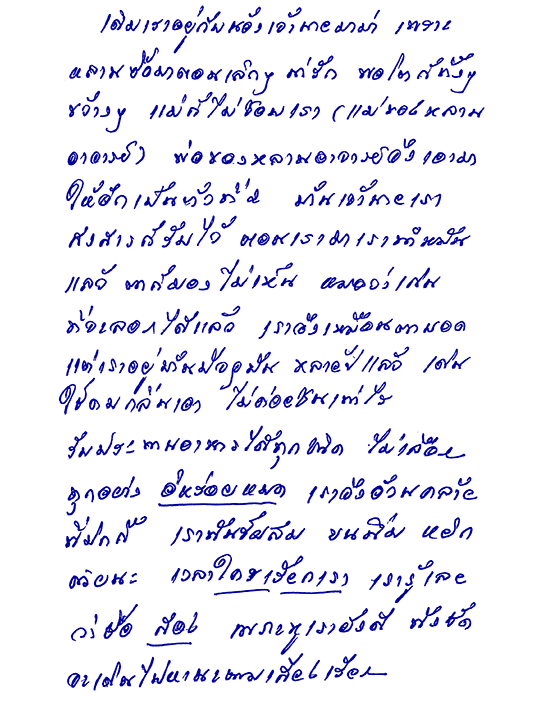 เดิมเราอยู่กับน้องเจ้านายมาน่า เพราะ
หลานซื้อมาตอนเล็กๆ น่ารัก พอโตก็ทิ้งๆ
ขว้างๆ แม่ก็ไม่ชอบเรา (แม่ของหลาน
อาจารย์) พ่อของหลานอาจารย์จึงเอามา
ให้อีกเป็นตัวที่ 2 เจ้านายเรา
สงสารก็รับไว้ ตอนเรามาเราทำหมัน
แล้ว ตาก็มองไม่เห็น หมอว่าเป็น
ต้อ ได้แล้ว เราจึงเหมือนตาบอด
แต่เราอยู่ หลายปีแล้ว เดิน
ใช้ดมกลิ่นเอา ไม่ค่อยชนเท่าไร
รับประทานอาหารได้ทุกชนิด ไม่เลือก
ทุกอย่าง อร่อยหมด เราจึงอ้วนคล้าย
พี่ปุกกี้ เราพันธุ์ผสม ขนนิ่ม หยิก
เวลาใครเรียกเรา เรารู้เลย
ว่าชื่อ สอง เพราะหูเรายังดี ฟังชัด
จะเดินไปหา ตามเสียงเรียก